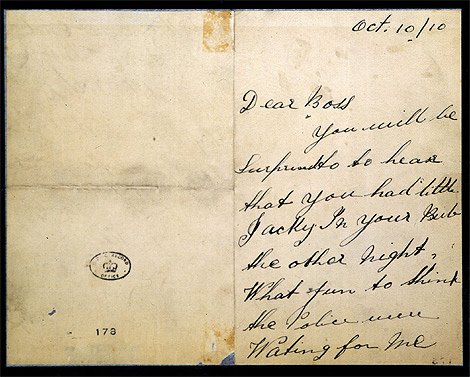 Oct. 10/10
Dear Boss
You will be
Surprisd to to hear
that you had little
Jacky In your Pub
the other Night.
What fun to think
the Police were
Wating for Me
OFFICE
178